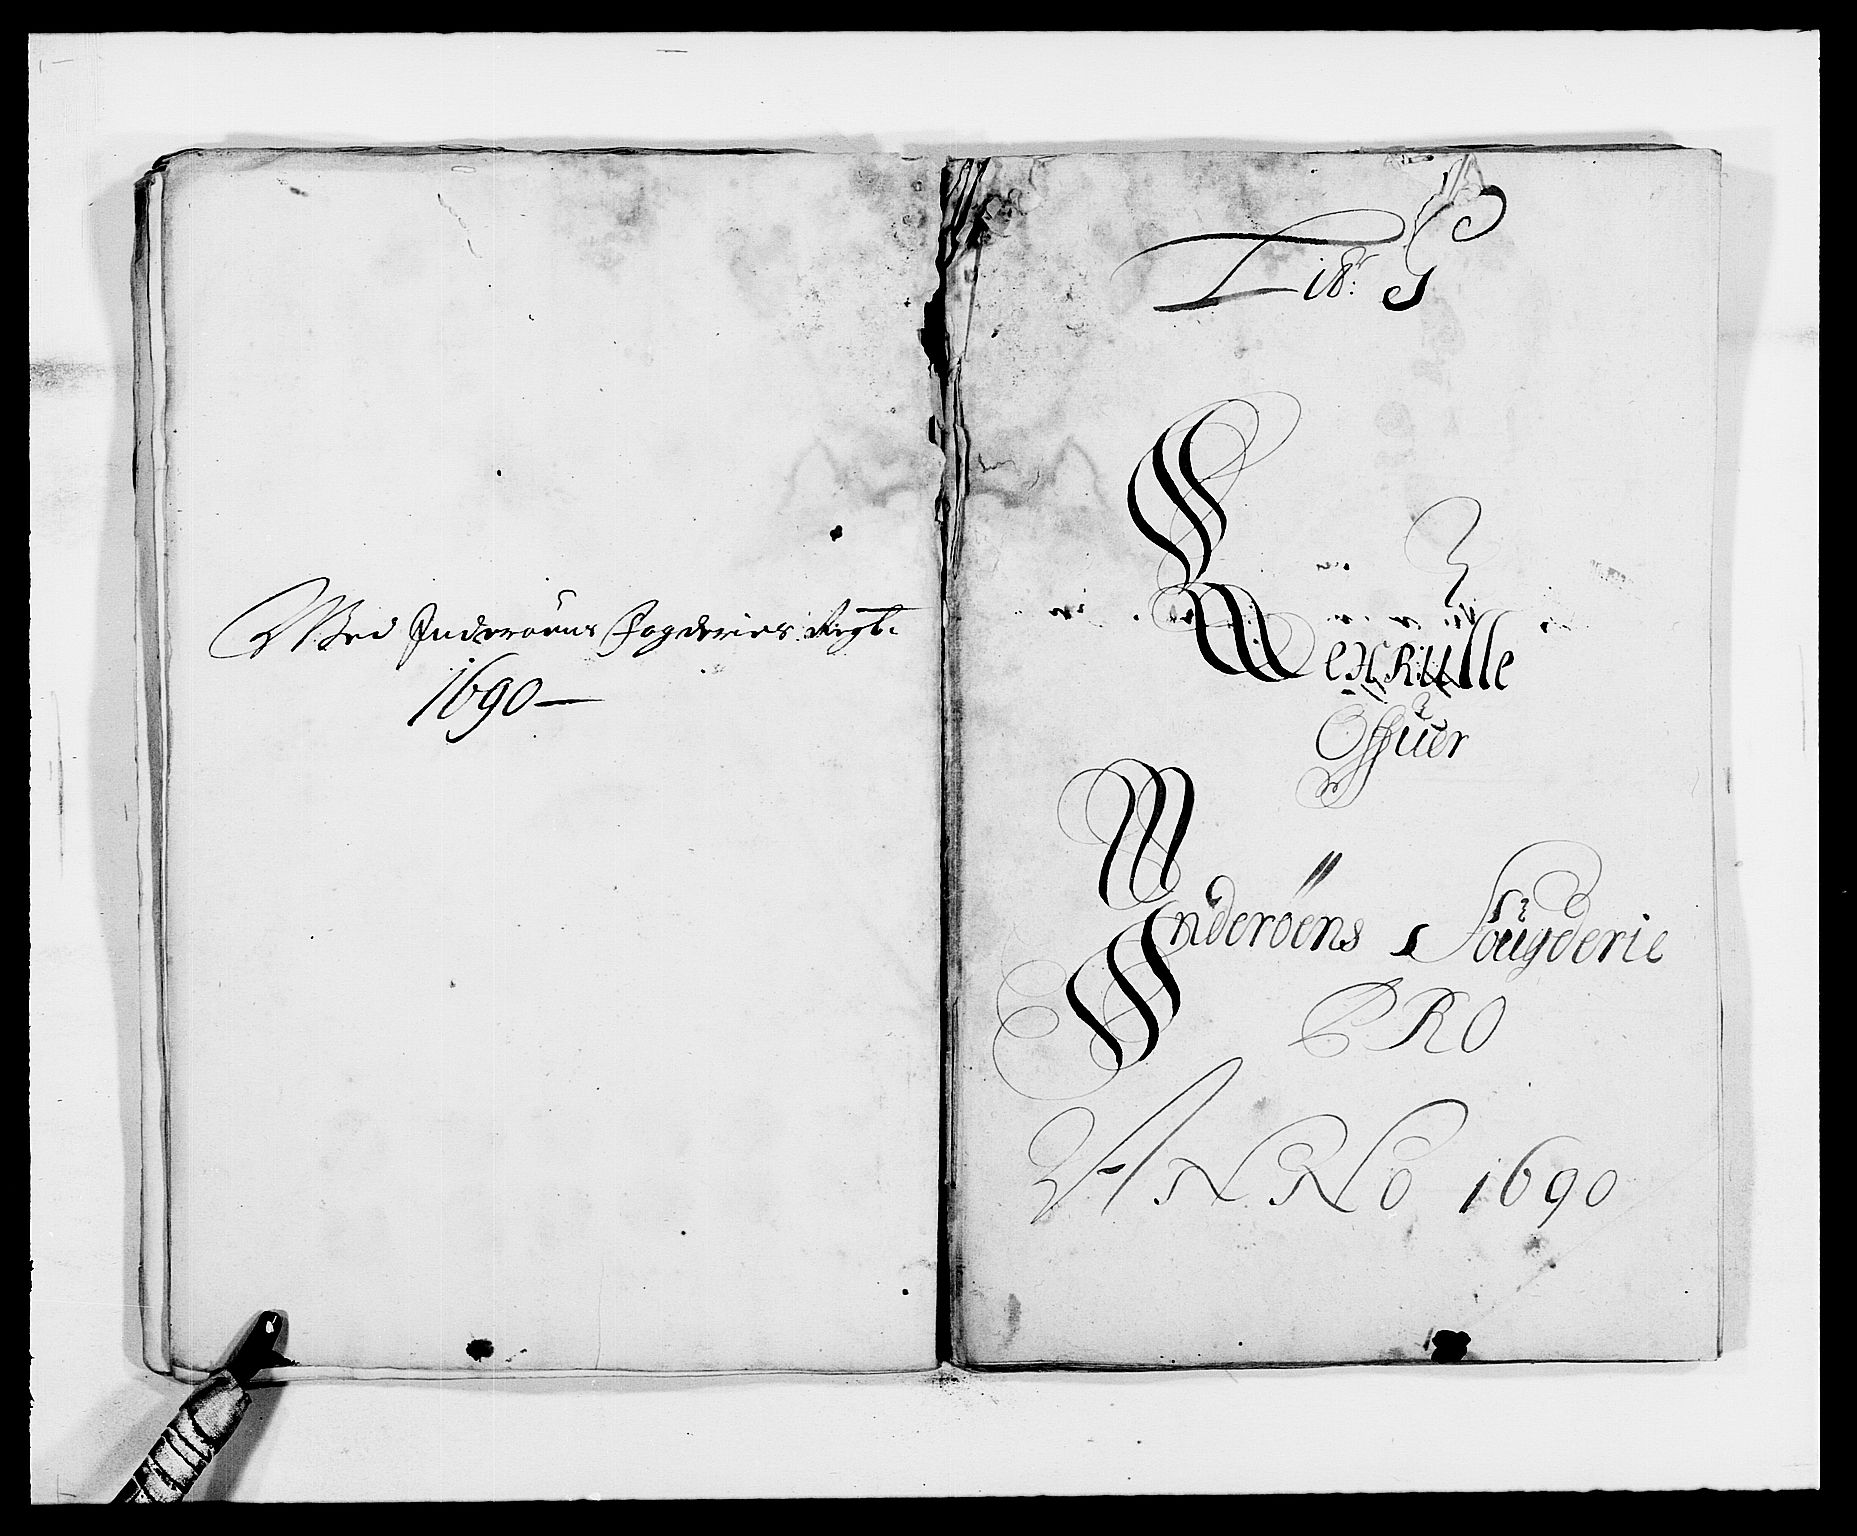 Wed Inderøens Fogderies Regb.
1690 —
Lit: G
Rexrulle
Offuer
Inderøens Fougderie
PRO
ANNO 1690